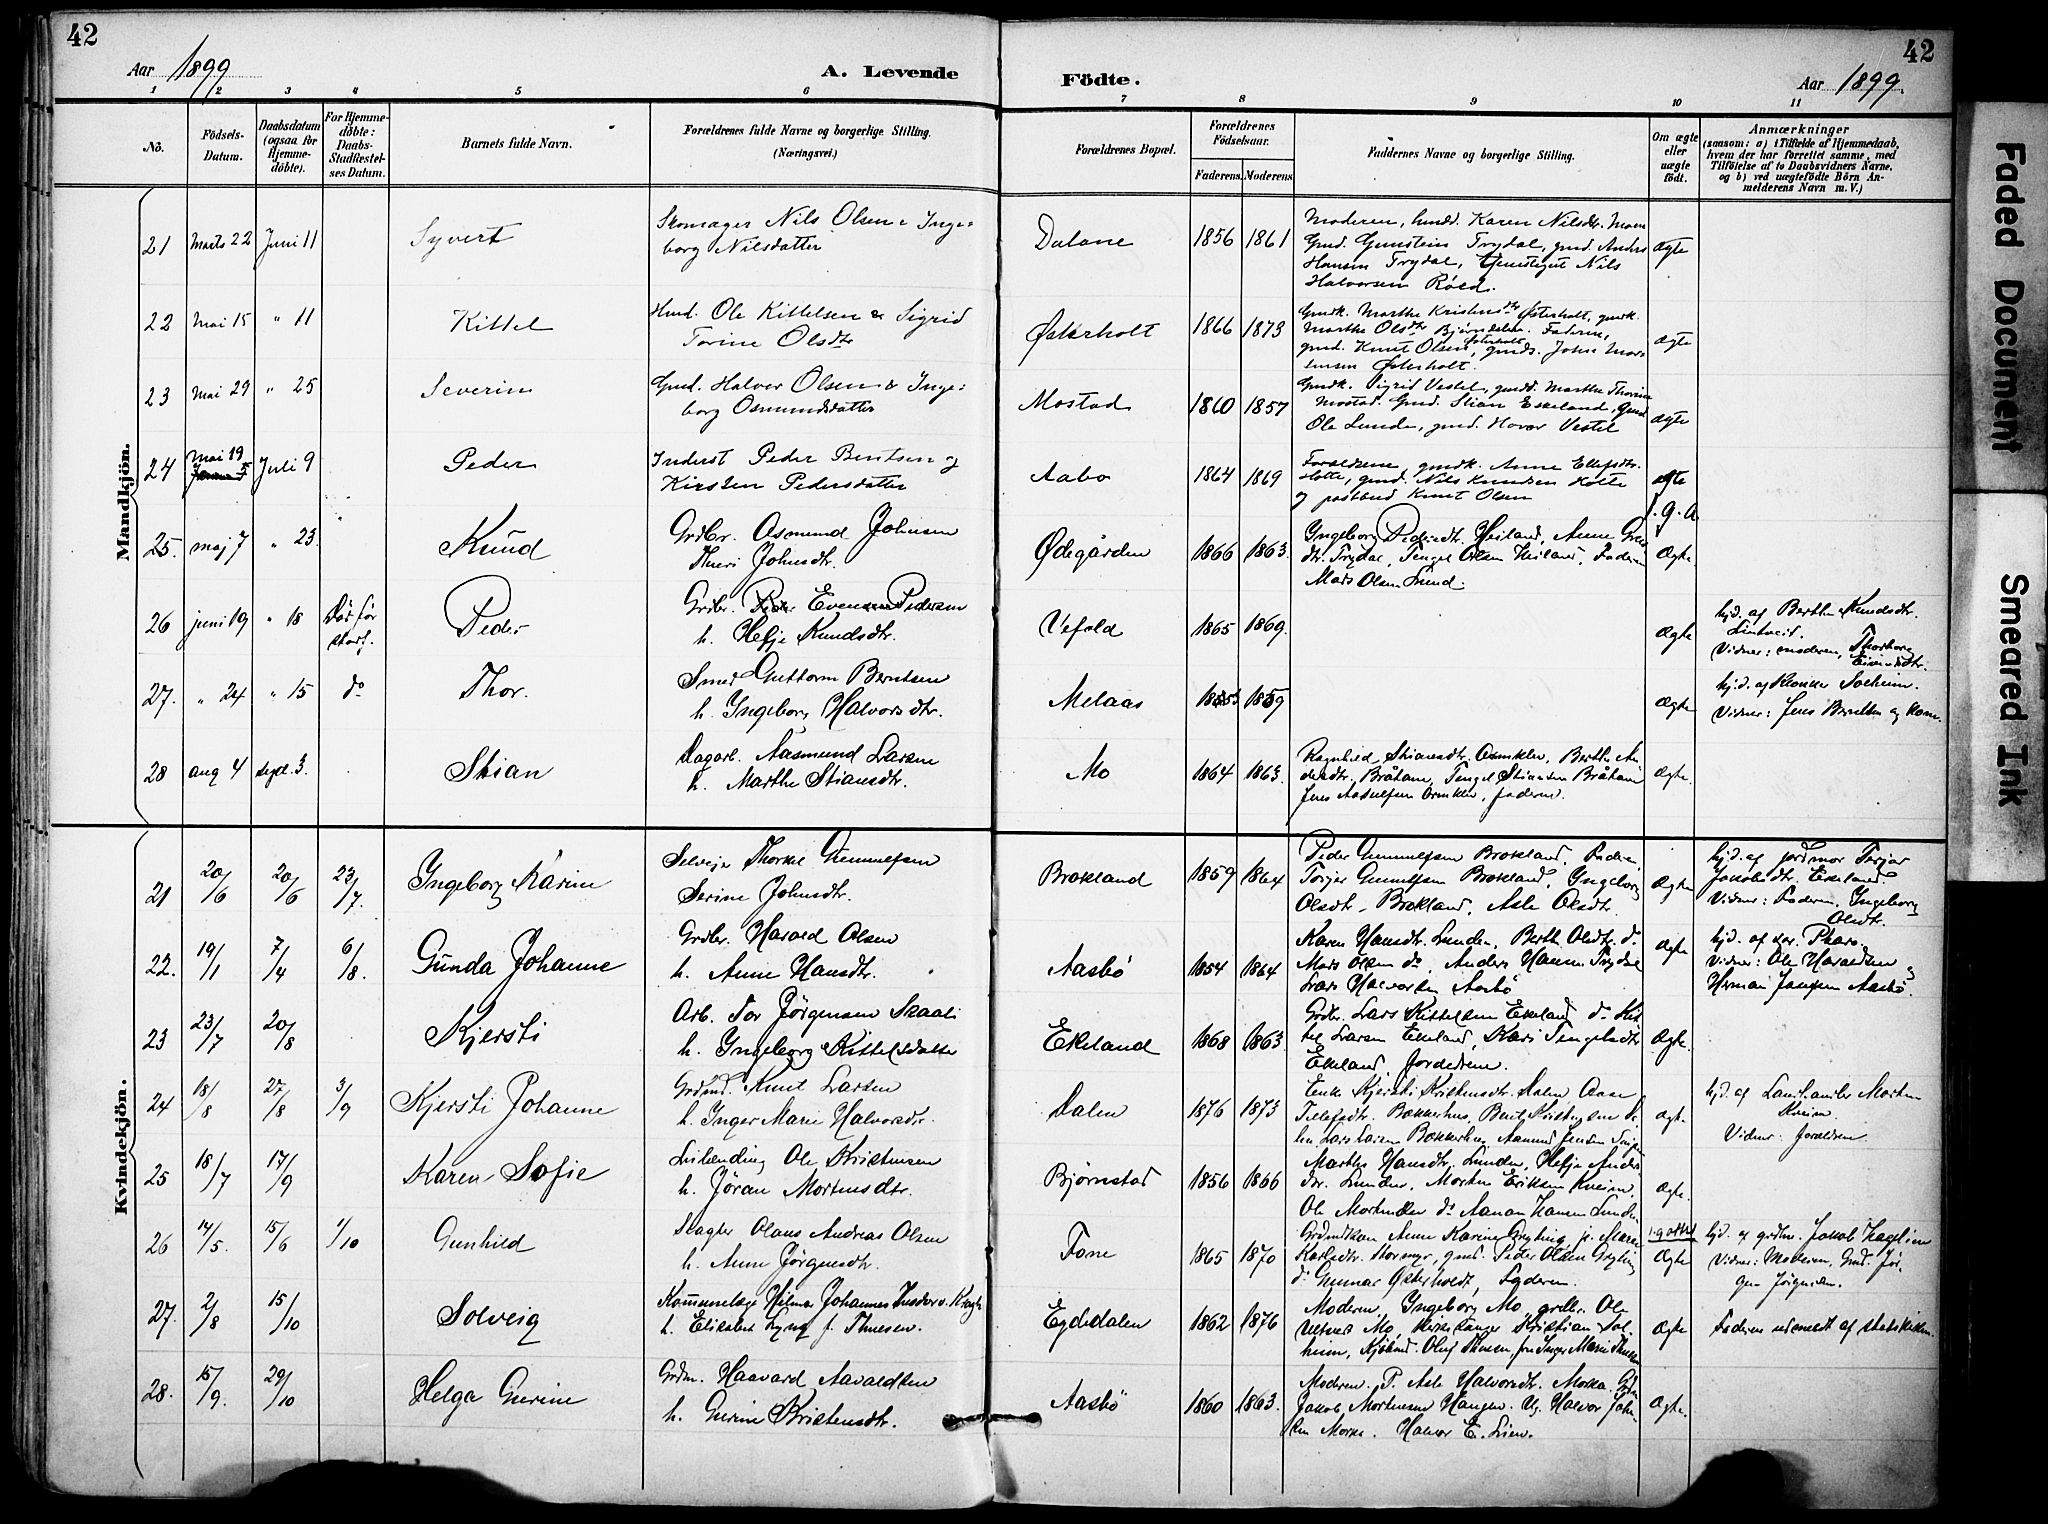 42
42
Aar 1899
A. Levende
Födte.
Aar 1899.
1 2 3 4 5 6 7 8 9 10 11
No.
Födsels-
Datum.
Daabsdatum
(ogsaa for
Hjemme-
döbte).
For Hjemme-
döbte:
Daabs-
Stadfæstel-
ses Datum.
Barnets fulde Navn.
Forældrenes fulde Navne og borgerlige Stilling.
(Næringsvei.)
Forældrenes Bopæl.
Forældrenes
Födselsaar.
Faderens. Moderens.
Faddernes Navne og borgerlige Stilling.
Om ægte
eller
uægte
født.
Anmærkninger
(saasom: a) i Tilfælde af Hjemmedaab,
hvem der har forrettet samme, med
Tilføielse af to Daabsvidners Navne,
og b) ved uægtefödte Börn An-
melderens Navn m. V.)
Mandkjön.
21 Marts 22 Juni 11 Syvert
Skomager Nils Olsen & Inge-
borg Nilsdatter
Dalane 1856 1861
Moderen, husd. Karen Nilsdtr. Moen
Gmd. Gunstein Trydal, gmd. Anders
Hansen Trydal, Tjenestegut Nils
Halvorsen Röed.
Ægte
22 Mai 15 " 11 Kittel
Husd. Ole Kittelsen & Sigrid
Torine Olsdtr
Østerholt 1866 1873
Gmdk. Marthe Kristensdtr Østerholt, gmdk.
Marthe Olsdtr Bjørndalen. Faderen,
gmd. Knut Olsen Østerholt, gmds. John
Østerholt.
ægte
23 Mai 29 " 25 Severin
Gmd. Halvor Olsen & Inge-
borg Osmundsdatter
Mostad 1860 1857
Gmdk. Sigrid Vestøl, gmdd. Marthe Thorine
Mostad. Gmd. Stian Eskeland, Gmd.
Ole Lunden, gmd. Hover Vestøl
ægte
24 Mai 19 Juli 9 Peder
Inderst Peder Bentsen og
Kirsten Pedersdatter
Aabo 1864 1869
Forældrene, gmdk. Anne Ellefsdtr.
Holte, gmd. Nils Knudsen Holte
og postbud Knut Olsen
ægte
J. G. A
25. maj 7 " 23. Knud
Grdbr. Osmund Johnsen
Thuri Johnsdtr.
Ødegården 1866 1863.
Ingeborg Pedersdtr. Heiland, Anne
dtr. Trydal, Tengel Olsen Heiland, Faderen
Mads Olsen Lund.
Ægte.
26 juni 19 " 18 Död før
stadf. Peder
Grdbr. Even Pedersen
h. Hefje Knudsdtr.
Vefald 1865 1869.
Ægte
hjd. af Berthe Knudsdtr.
Lintveit.
Vidner: moderen, Thorborg
27. " 24 " 15 do Thor.
Smed Guttorm Berntsen
h. Ingeborg Halvorsdtr.
Melaas 1859
Ægte.
hjd. af Solheim.
Vidner: Jens Berntsen og kone.
28 aug 4 sept. 3. Stian
Dagarb. Aasmund Larsen
h. Marthe Stiansdtr.
Mo 1864 1863.
Ragnhild Stiansdtr. Ormklev, Berthe An-
dersdtr. Bråtane, Tengel Stiansen Bråtane
Jens Aasulfsen Ormklev, faderen.
Ægte.
Kvindekjön.
21 20/6 20/6 23/7. Ingeborg Karine
Selveje Thorkel Gunnulfsen
Serine Johnsdtr.
Brokland 1859 1864
Peder Gunnulfsen Brokland, Faderen
Torjer Gunnulfsen Brokland, Ingeborg
Olsdtr. Brokland, Asle Olsdtr.
Ægte
hjd. af jordmor Torjer
Jakobsdtr. Ekeland.
Vidner: Faderen, Ingeborg
Olsdtr.
22. 19/1 7/4 6/8. Gunda Johanne
Grdbr. Harald Olsen
h. Anne Hansdtr.
Aasbö 1854 1864
Karen Hansdtr. Lunden, Berthe Olsdtr. do.
Mads Olsen do, Anders Hansen Trydal
Lars Halvorsen Aasbö
Ægte
hjd. af
Vidner: Ole Haraldsen og
Herman Jansen Aasbö.
23 23/7 20/8 Kjersti
Arb. Tor Jörgensen Skaali
h. Ingeborg Kittelsdatter
Ekeland 1868 1863.
Grdbr. Lars Kittelsen Ekeland do Kit-
tel Larsen Ekeland, Kari Tengelsdtr
Ekeland, Forældrene.
Ægte.
24 18/8 27/8 3/9 Kjersti Johanne
Grdmd. Knut Larsen
h. Inger Marie Halvorsdtr.
Dalen 1876 1873
Enke Kjersti Kristensdtr. Dalen
Telefsdtr. Bakkerhus,
Ægte.
hjd. af Landhandler Morten
Kveim.
Vidner: Forældrene
25 18/7 17/9 Karen Sofie
Leilænding Ole Kristensen
h. Jöran Mortensdtr.
Bjørnstad 1856 1866
Marthe Hansdtr. Lunden, Hefje Anders-
dtr. Lunden, Morten Eriksen Kveim,
Ole Mortensen do Aanan Hansen Lunden
Ægte.
26 14/5. 15/6 1/10 Gunhild
Slagter Olaus Andreas Olsen
h. Anne Jörgensdtr.
Tone 1865 1870
Grdmdskone Anne Karine Gryting, p. Maren
Karlsdtr. Stormyr, gmd. Peder Olsen Gryting
do Gunnar Østerholdt, Faderen.
Ægte
hjd. af grdbr. Jakob Hagelien
Vidner: Moderen, Gmd. Jör-
gen Jörgensen.
27. 2/8 15/10 Solveig
Kommunelæge Hilmar Johannes v. Krogh
h. Elisabet Lyng f. Thuesen.
Egdedalen 1862 1876
Moderen, Ingeborg Mo, grdbr. Ole
Mo, Kirkesanger Kristian Sol-
heim, Kjöbmd. Oluf Thuesen, fru Inger Marie Thuesen
Ægte
Faderen udmeldt af statskirken.
28. 15/9. 29/10 Helga Gurine
Grdm. Haavard Aavaldsen
h. Gurine Kristensdtr.
Aasbö 1860 1863.
Moderen. P. Asle Halvorsdtr. Morka.
Jakob Mortensen Haugen. Ug. Halvor Joha-
sen Morka. Halvor E. Lien.
Ægte.
Faded Document
Smeared Ink